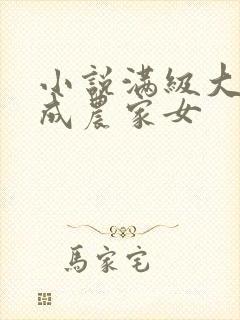 小說滿級大
成農家女
馬家宅